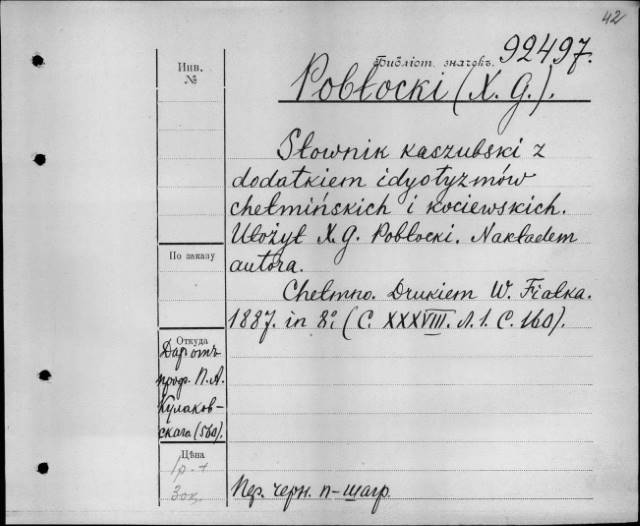 42
92497.
Инв.
№
Библіот. значекъ.
Pobłocki (X. G.).
Słownik kaszubski z
dodatkiem idyotyzmów
chełmińskich i kociewskich.
Ułożył X. G. Pobłocki. Nakładem
autora.
Chełmno. Drukiem W. Fiałka.
1887. in 8° (С. XXXVIII. Л. 1. С. 160).
По заказу
Откуда
Даръ отъ
проф. П. А.
Кулаков-
скаго (560).
Цѣна
1р. +
30к.
Пер. черн. п-шагр.